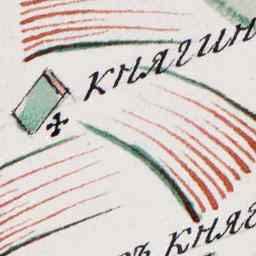 КНЯГИН
РЪ КНЯГ